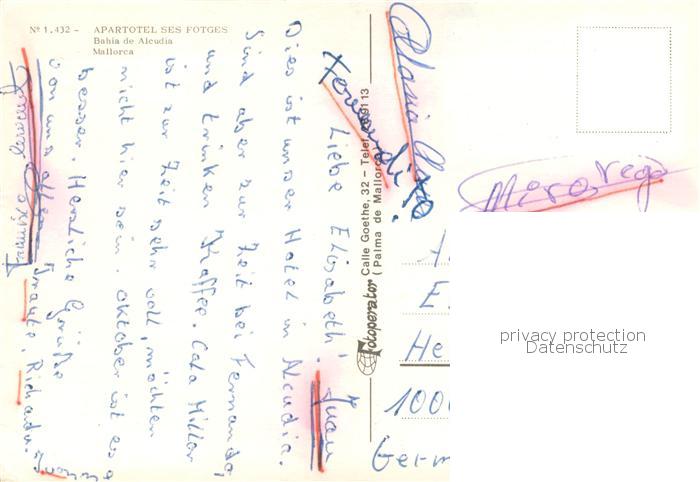 Nº 1.432 - APARTOTEL SES FOTGES
Bahía de Alcudia
Mallorca
Liebe Elisabeth,
Dies ist unser Hotel in Alcudia.
Sind aber zur Zeit bei Fernando,
und trinken Kaffee. Cala Millor
ist zur Zeit sehr voll, möchten
nicht hier sein. Oktober ist es
besser. Herzliche Grüße
von uns allen
Traute, Richard
Juan
Fotoperator Calle Goethe, 32 - Telef.
(Palma de Mallorca
He
1000
Germ
privacy protection
Datenschutz